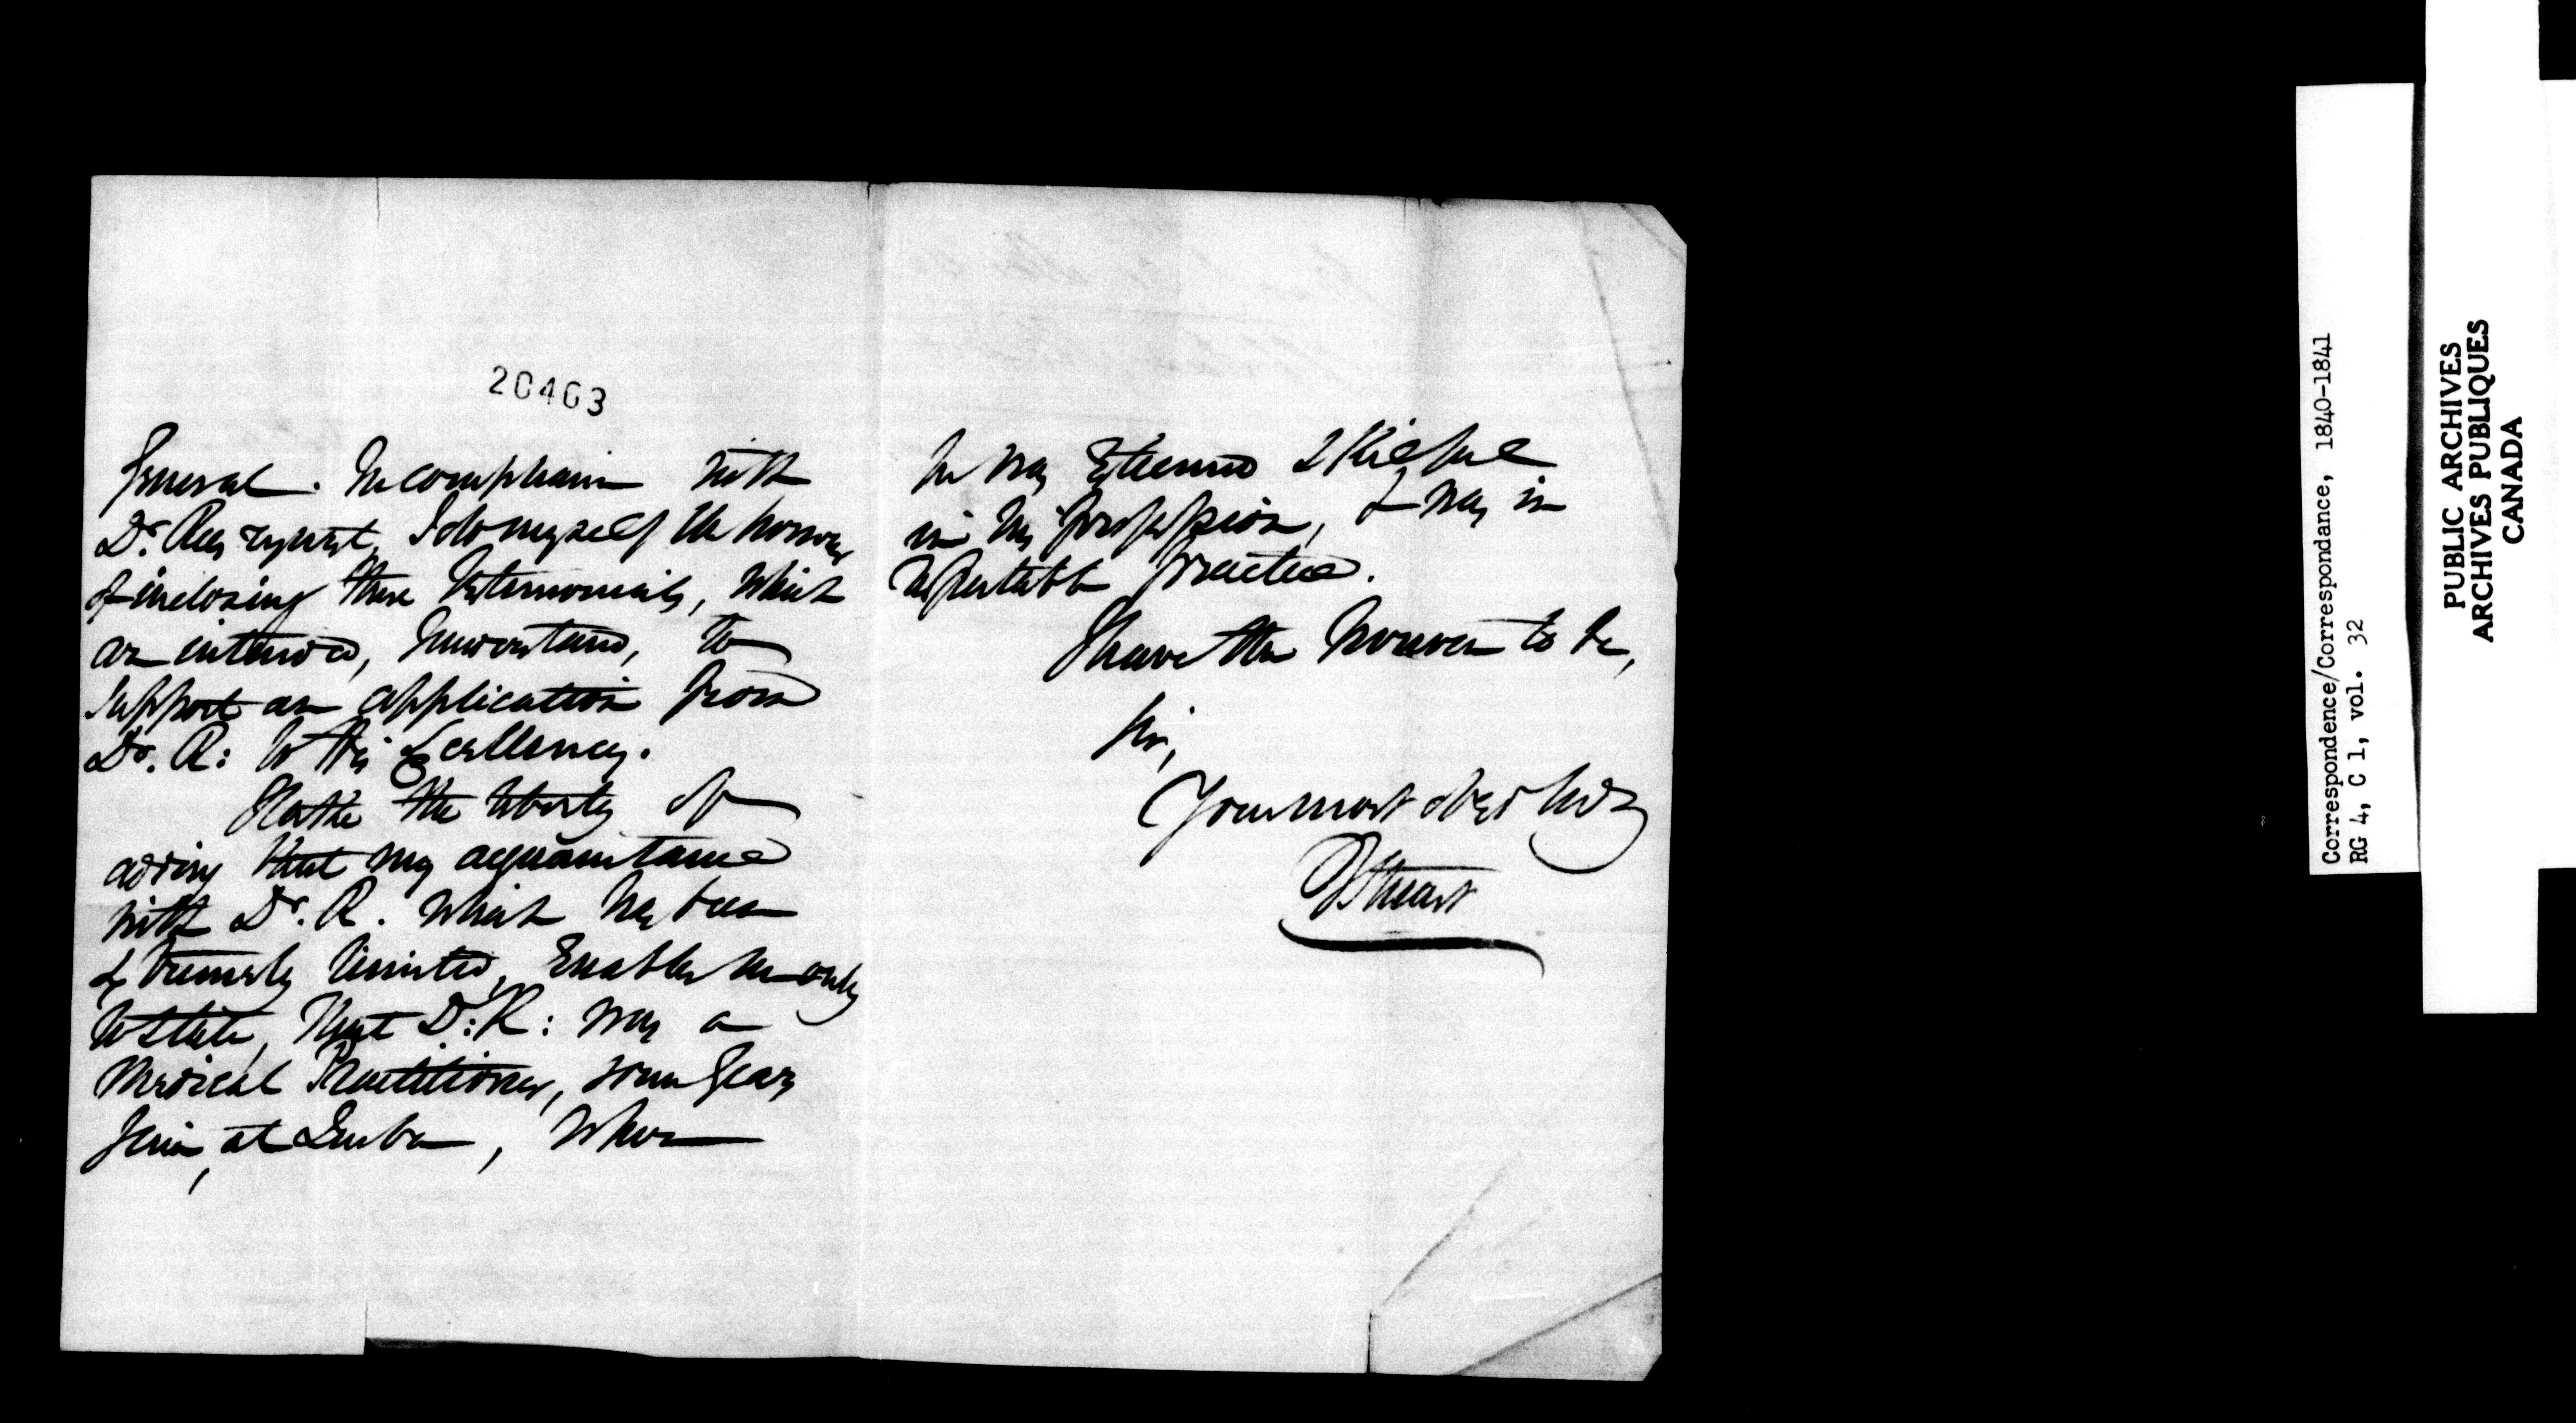 20403
General. In compliance with
Dr. Rees request, I do myself the honour
of inclosing these Testimonials, which
are intended, I understand, to
support an application from
Dr. R: to His Excellency.
I take the liberty of
adding that my acquaintance
with Dr. R. which has been
extremely limited, Enables me only
to state, that D: R: was a
Medical Practitioner, some years
since, at Quebec, where
he was Esteemed skilful
in his profession, & was in
respectable practice.
I have the honour to be,
Sir,
Your most obed Serv
Stuart
Correspondence/Correspondance, 1840-1841
RG 4, C 1, vol. 32
PUBLIC ARCHIVES
ARCHIVES PUBLIQUES
CANADA